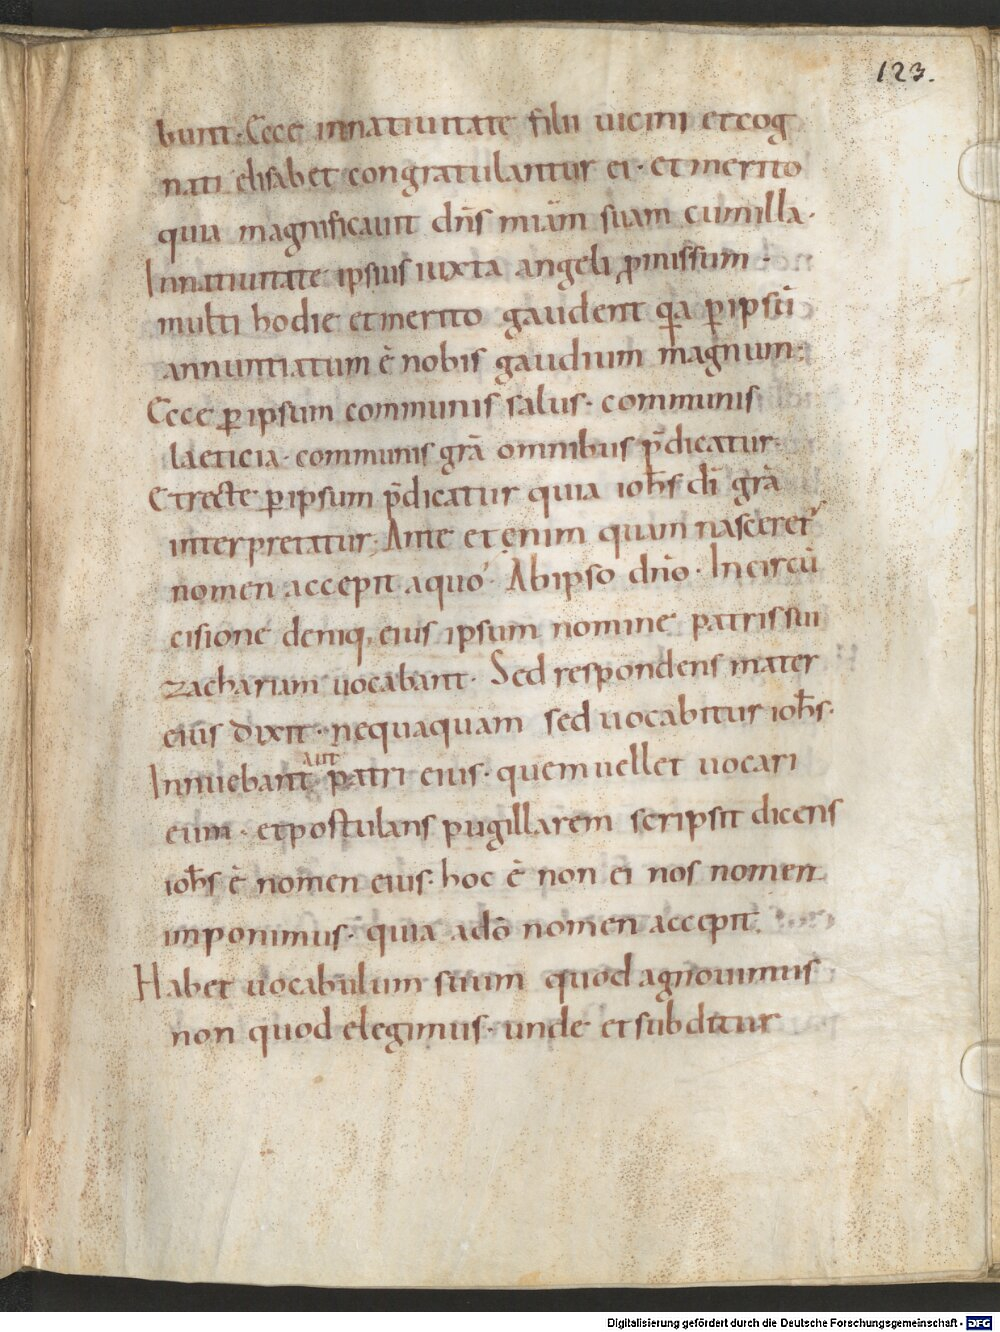 123.
bunt. Ecce innativitate filii vicini et cog
nati elisabet congratulantur ei. et merito
quia magnificavit dn̄s miām suam cumilla.
Innativitate ipsius iuxta angeli p̄missum.
multi hodie et merito gaudent qa p̄ ipsū
annuntiatum ē nobis gaudium magnum.
Ecce p̄ ipsum communis salus. communis
laeticia. communis grā omnibus p̄dicatur.
Et recte p̄ ipsum p̄dicatur quia ioh̄s dī grā
interpretatur. Ante et enim quam nasceret᷑
nomen accepit aquo. Ab ipso dn̄o. In circū
cisione deniq; eius ipsum nomine patris sui
zacharium vocabant. Sed respondens mater
eius dixit. nequaquam sed vocabitur ioh̄s.
aut
Innuebant patri eius. quem vellet vocari
eum. et postulans pugillarem scripsit dicens
ioh̄s ē nomen eius. hoc ē non ei nos nomen
imponimus. quia adō nomen accepit.
Habet vocabulum suum quod agnovimus
non quod elegimus. unde et subditur
Digitalisierung gefördert durch die Deutsche Forschungsgemeinschaft - DFG